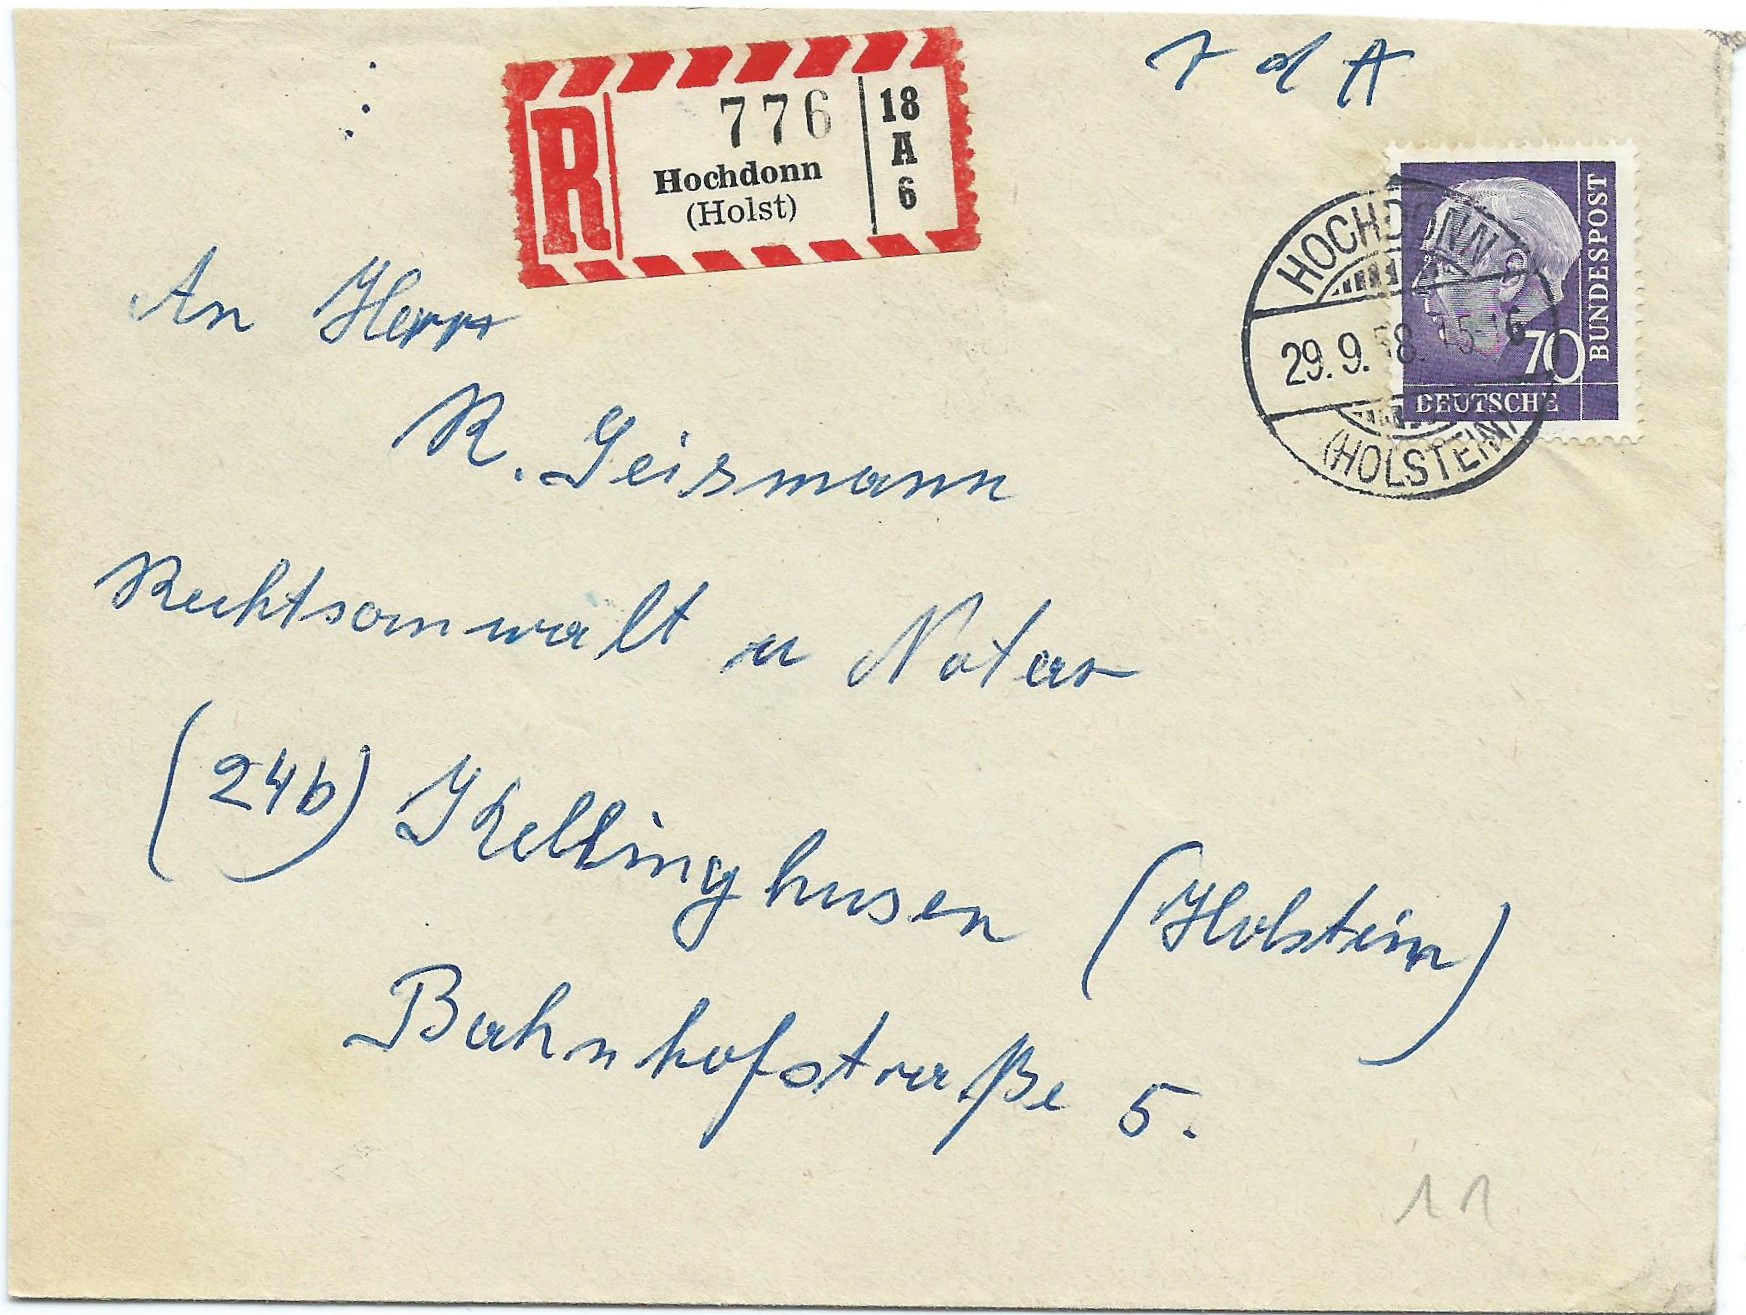 R
776
Hochdonn
(Holst)
18
A
6
HOCHDONN
29.9.58.15-16
(HOLSTEIN)
70
BUNDESPOST
DEUTSCHE
An Herrn
R. Geismann
Rechtsanwalt u Notar
(24b) Kellinghusen (Holstein)
Bahnhofstraße 5.
11